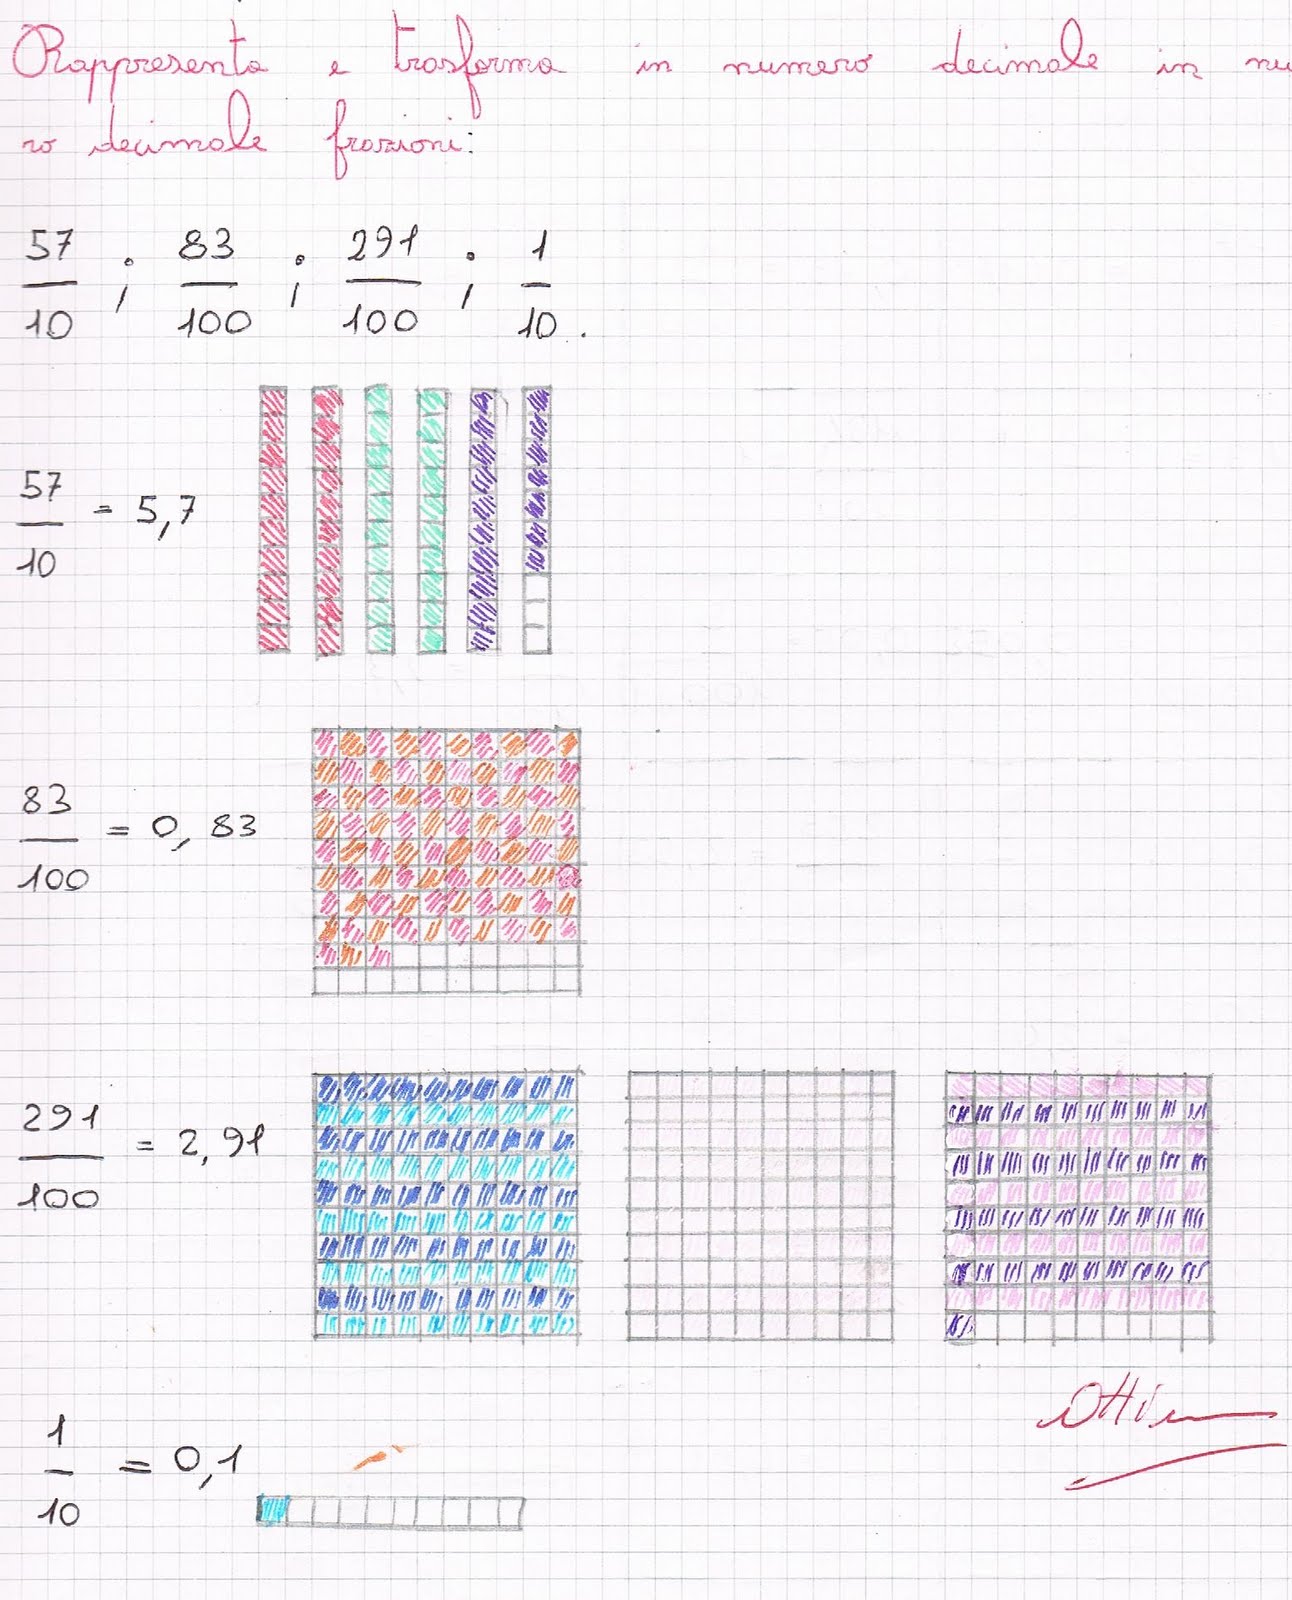 Rappresenta e trasforma in numero decimale in nu
ro decimale frazioni:
57/10 ; 83/100 ; 291/100 ; 1/10.
57/10 = 5,7
83/100 = 0,83
291/100 = 2,91
1/10 = 0,1